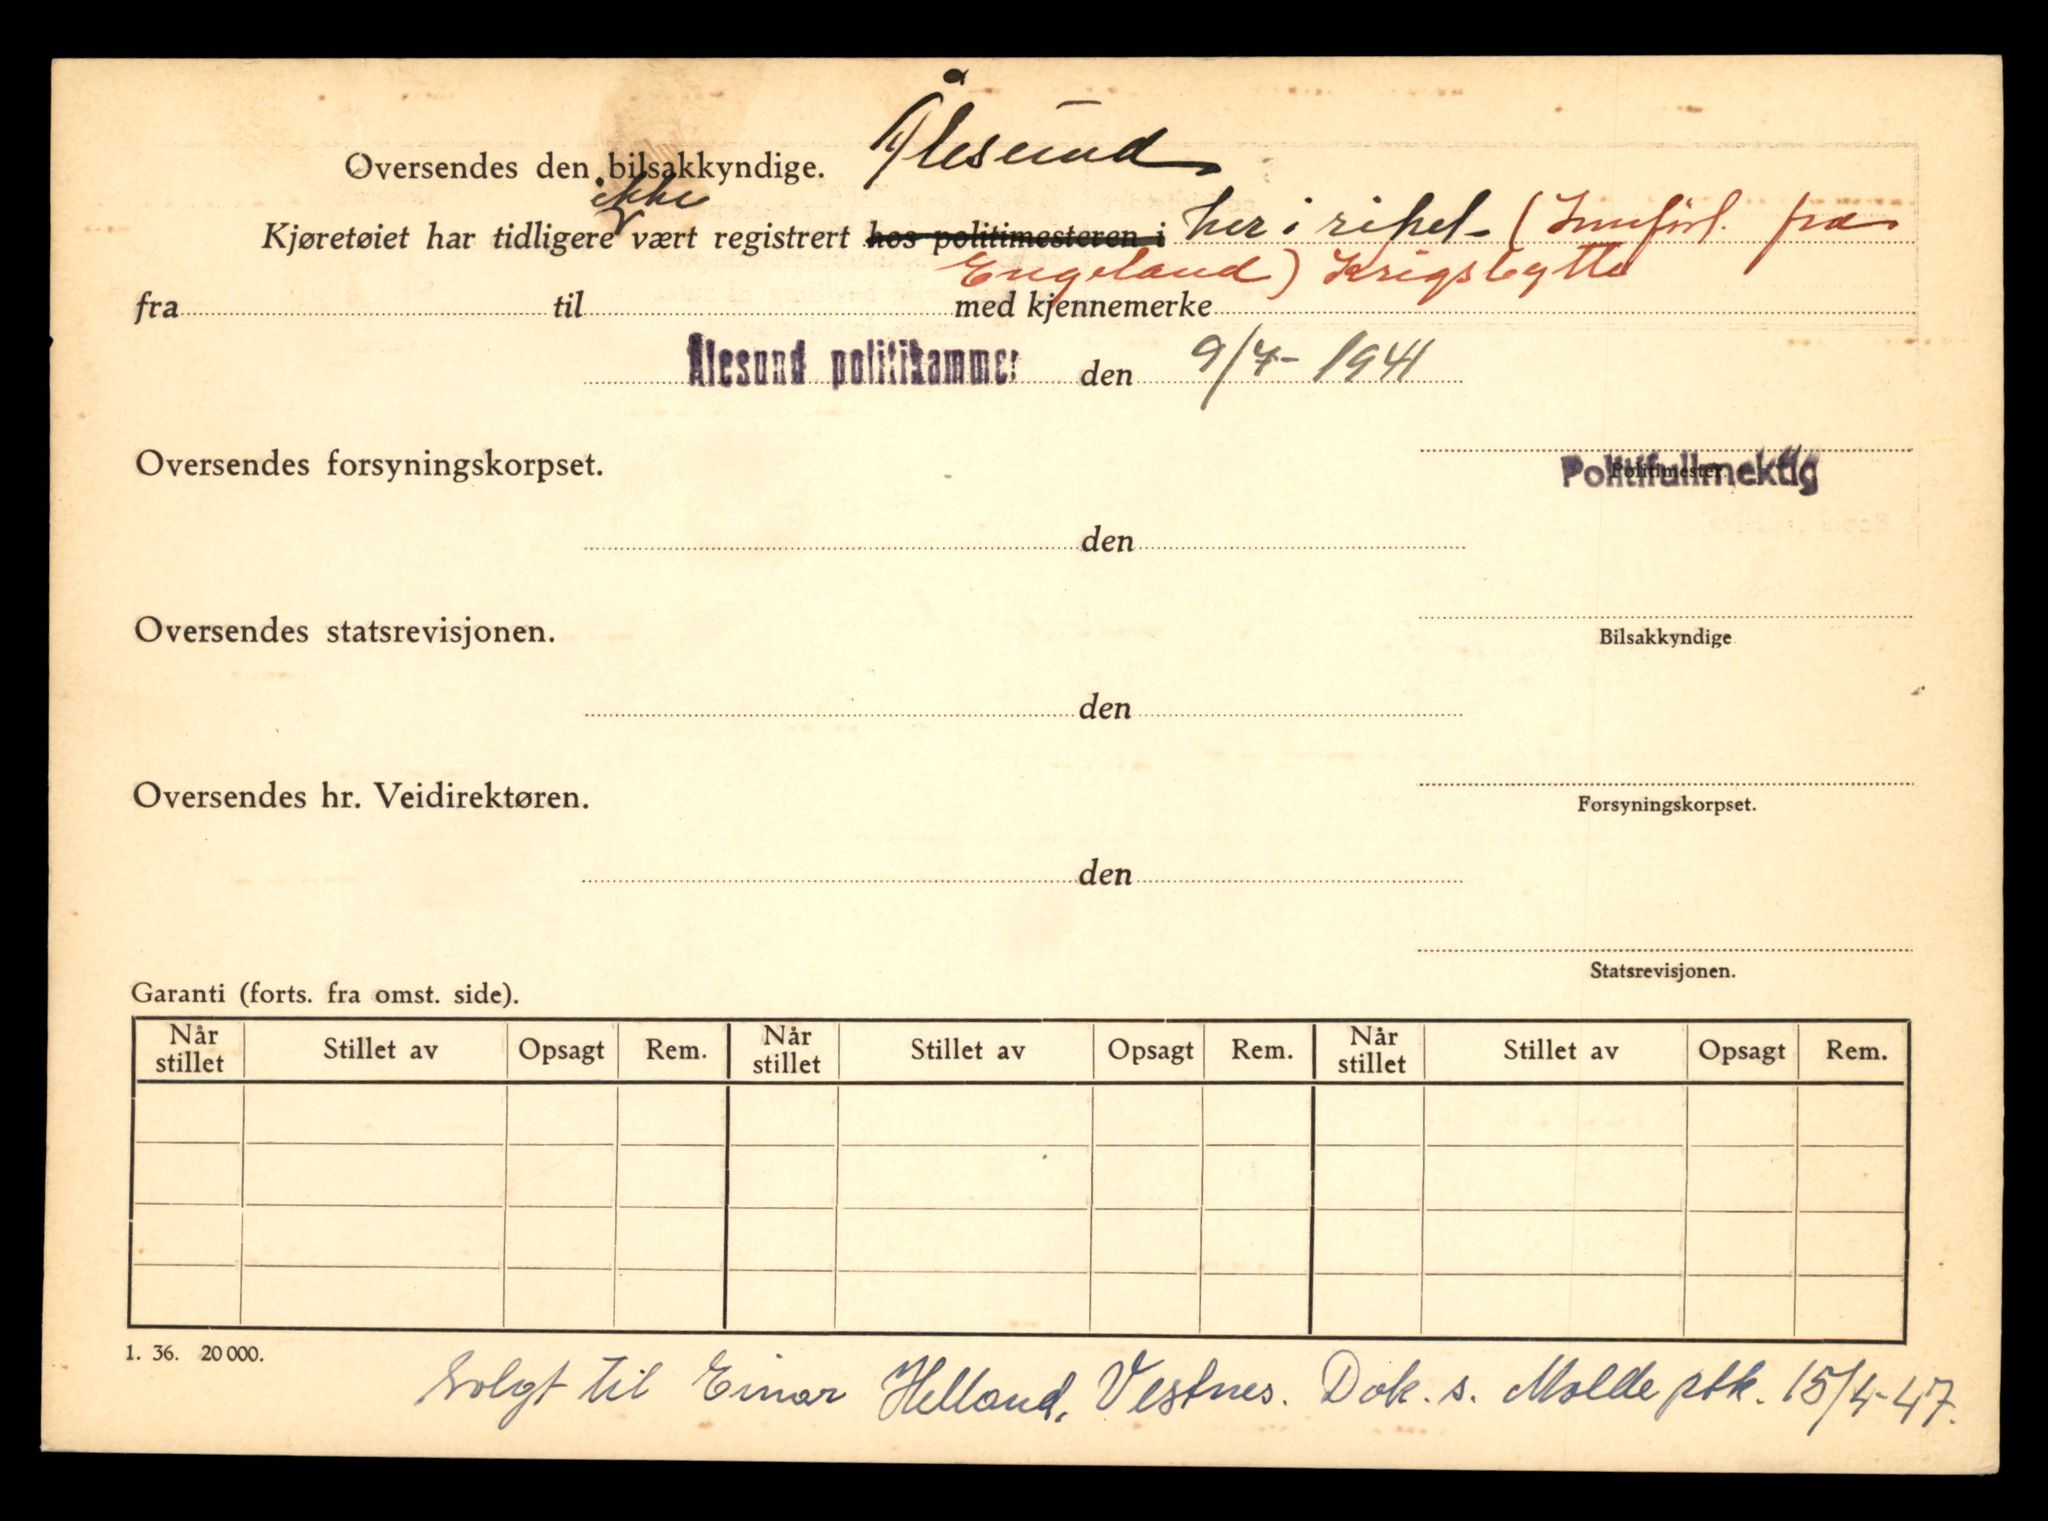 Oversendes den bilsakkyndige. Ålesund
ikke
Kjøretøiet har tidligere vært registrert hos politimesteren i her i riket - (Innført. fra
Engeland) Krigsbytte
fra til med kjennemerke
Ålesund politikammer den 9/7- 1941
Oversendes forsyningskorpset.
Politimester.
Politifullmektig
den
Oversendes statsrevisjonen.
Bilsakkyndige
den
Oversendes hr. Veidirektøren.
Forsyningskorpset.
den
Statsrevisjonen.
Garanti (forts. fra omst. side).
Når stillet Stillet av Opsagt Rem. Når stillet Stillet av Opsagt Rem. Når stillet Stillet av Opsagt Rem.
1. 36. 20 000.
Solgt til Einar Helland, Vestnes. Dok. s. Molde ptk. 15/4-47.